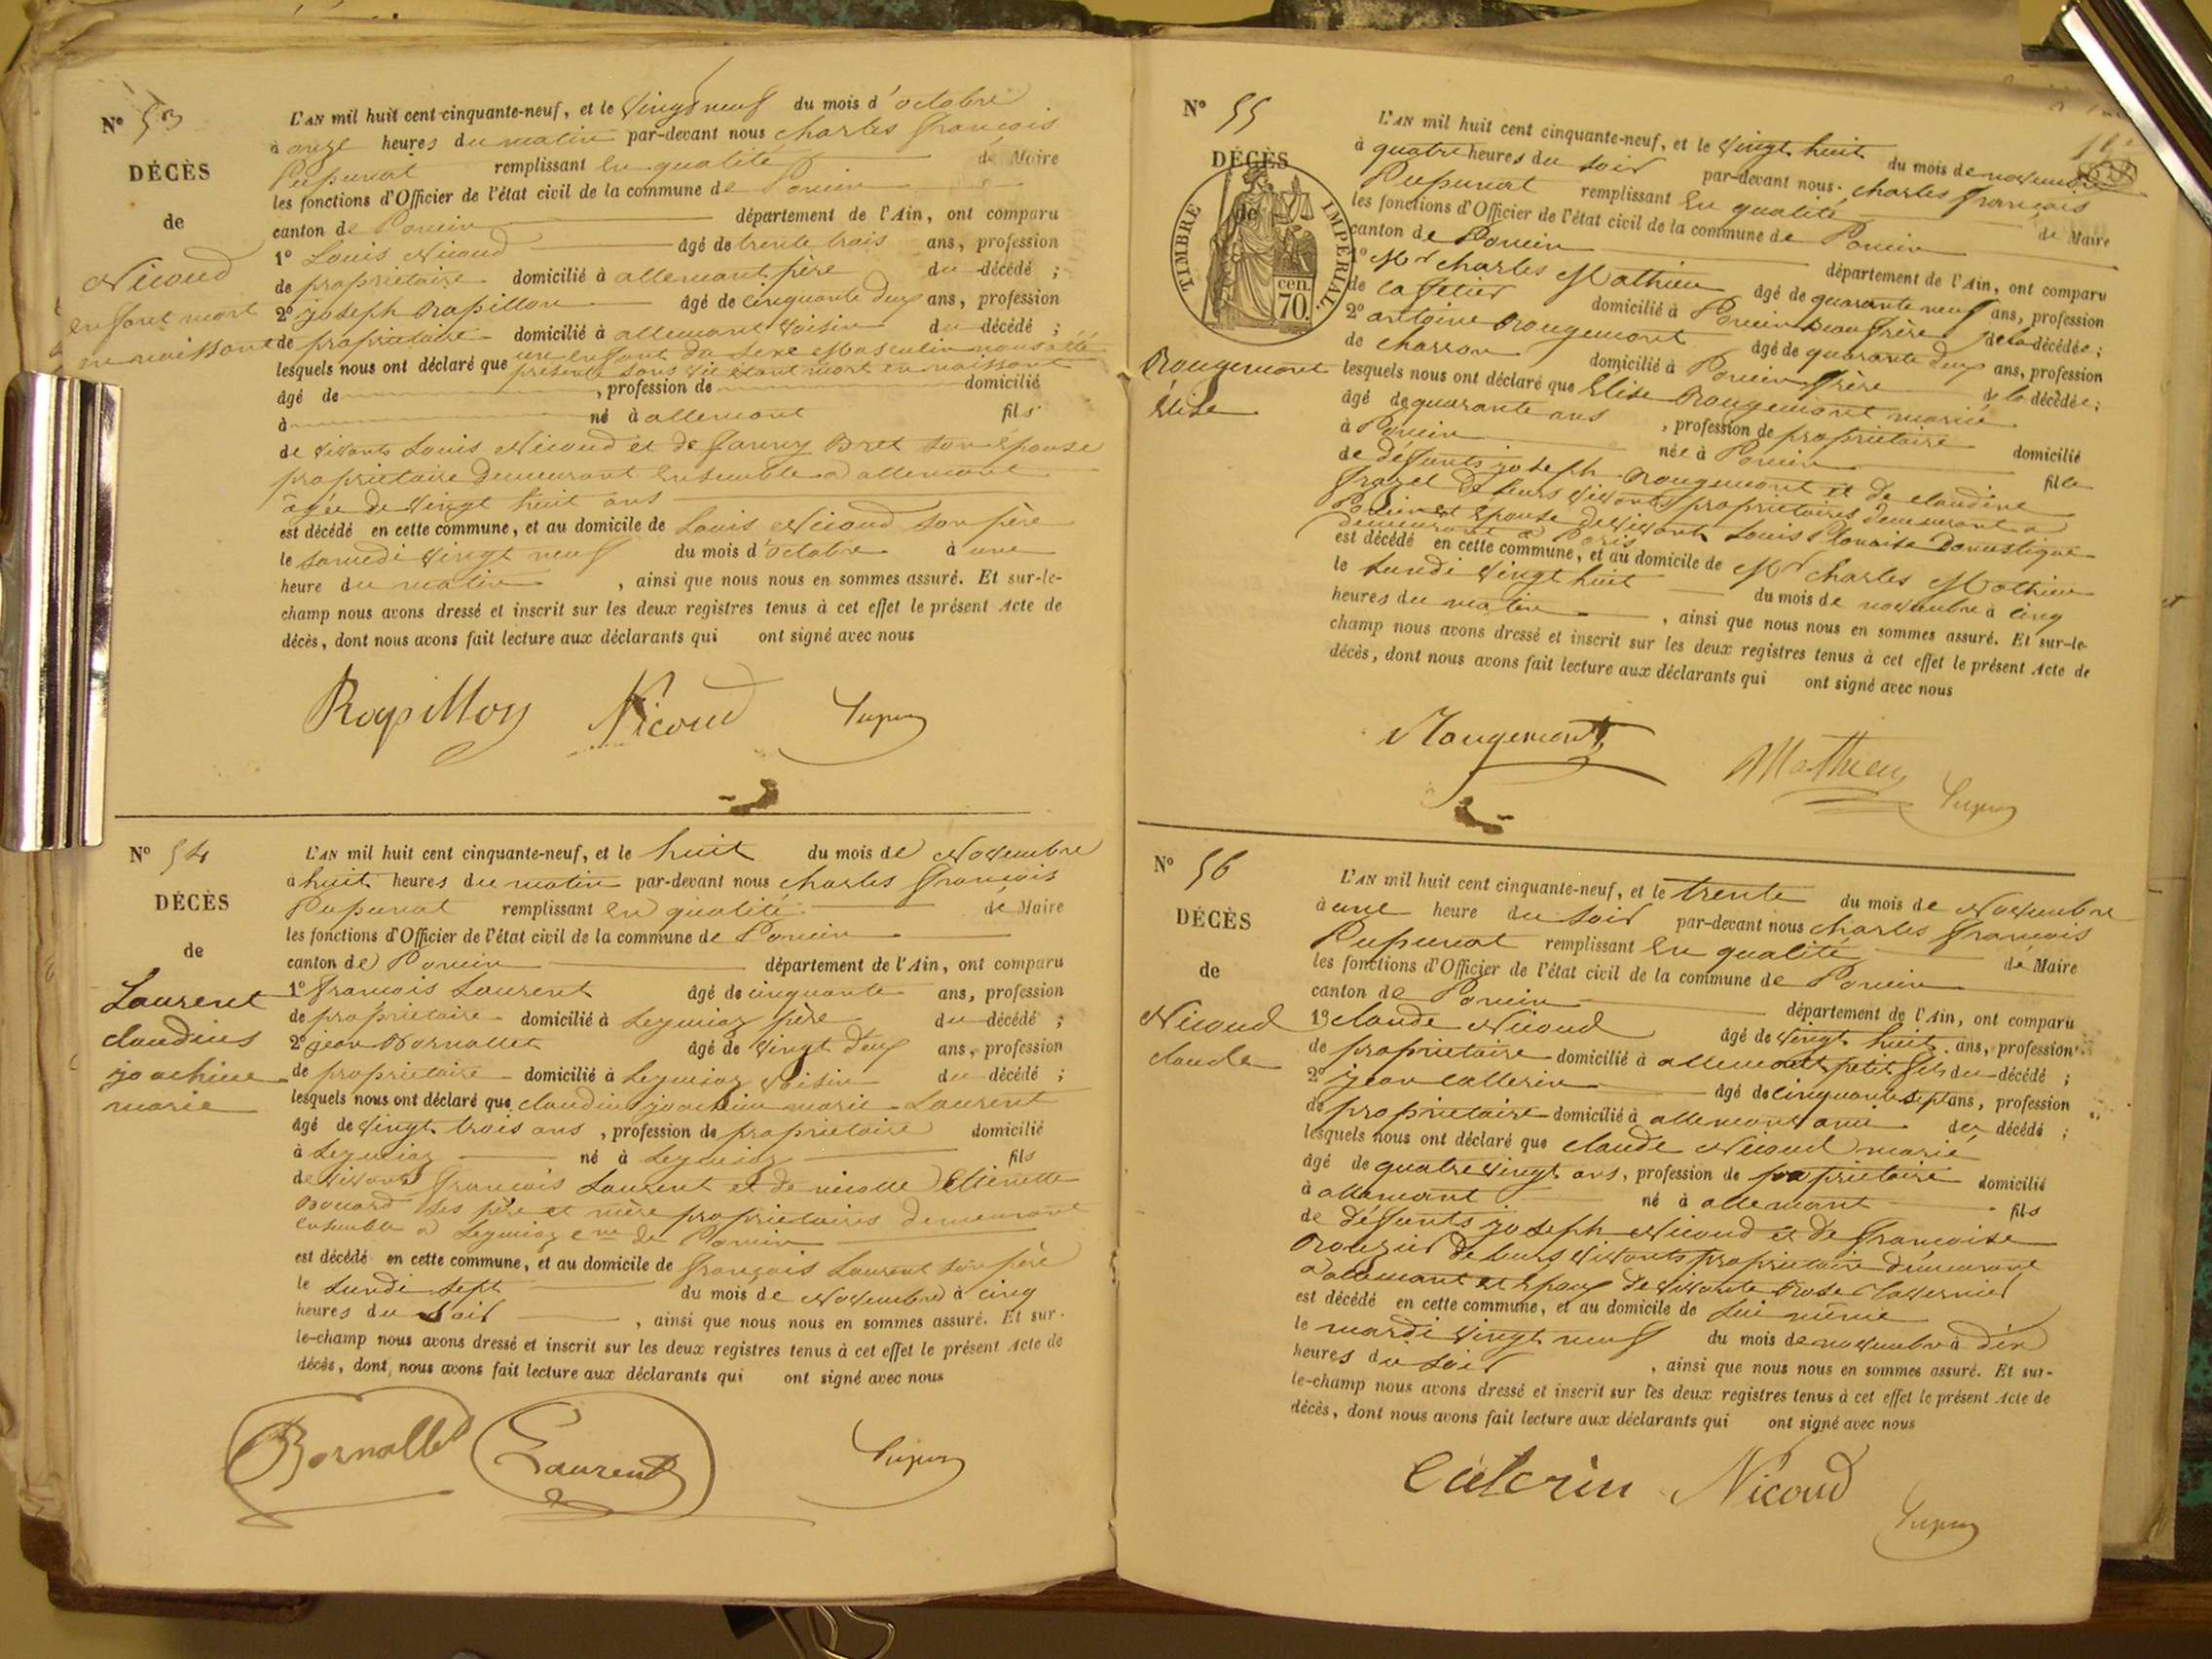 N° 53
DÉCÈS
de
Nicoud
enfant mort
en naissant
L'AN mil huit cent cinquante-neuf, et le vingt neuf du mois d'octobre
à onze heures du matin par-devant nous charles françois
Pupunat remplissant en qualité de Maire
les fonctions d'Officier de l'état civil de la commune de Poncin
canton de Poncin département de l'Ain, ont comparu
1° Louis Nicoud âgé de trente trois ans, profession
de propriétaire domicilié à allemant père du décédé ;
2° joseph Rapillon âgé de cinquante deux ans, profession
de propriétaire domicilié à allemant voisin du décédé ;
lesquels nous ont déclaré que un enfant du sexe Masculin nous a été
présenté sans vie étant mort en naissant
âgé de , profession de domicilié
à né à allemant fils
de vivants Louis Nicoud et de fanny Bret son épouse
propriétaire demeurant ensemble a allemant
âgée de vingt huit ans
est décédé en cette commune, et au domicile de Louis Nicoud son père
le samedi vingt neuf du mois d'octobre à une
heure du matin , ainsi que nous nous en sommes assuré. Et sur-le-
champ nous avons dressé et inscrit sur les deux registres tenus à cet effet le présent Acte de
décès, dont nous avons fait lecture aux déclarants qui ont signé avec nous
Rapillon Nicoud
N° 54
DÉCÈS
de
Laurent
claudius
joachim
marie
L'AN mil huit cent cinquante-neuf, et le huit du mois de Novembre
à huit heures du matin par-devant nous charles françois
Pupunat remplissant en qualité de Maire
les fonctions d'Officier de l'état civil de la commune de Poncin
canton de Poncin département de l'Ain, ont comparu
1° françois Laurent âgé de cinquante ans, profession
de propriétaire domicilié à Leymiaz père du décédé ;
2° jean Bornallet âgé de vingt deux ans, profession
de propriétaire domicilié à Leymiaz voisin du décédé ;
lesquels nous ont déclaré que claudius joachim marie Laurent
âgé de vingt trois ans , profession de propriétaire domicilié
à Leymiaz né à Leymiaz fils
de vivants françois Laurent et de nicolle Etienette
ses père et mère propriétaires demeurant
ensemble a Leymiaz cne de Poncin
est décédé en cette commune, et au domicile de françois Laurent son père
le Lundi sept du mois de Novembre à cinq
heures du soir , ainsi que nous nous en sommes assuré. Et sur-
le-champ nous avons dressé et inscrit sur les deux registres tenus à cet effet le présent Acte de
décès, dont nous avons fait lecture aux déclarants qui ont signé avec nous
Bornallet Laurent
N° 55
DÉCÈS
de
TIMBRE IMPÉRIAL.
70 cen.
Rougemont
Elise
L'AN mil huit cent cinquante-neuf, et le vingt huit du mois de novembre
à quatre heures du soir par-devant nous charles françois
Pupunat remplissant en qualité de Maire
les fonctions d'Officier de l'état civil de la commune de Poncin
canton de Poncin département de l'Ain, ont comparu
1° Mr charles Mathieu âgé de quarante neuf ans, profession
de cafetier domicilié à Poncin Beau frère de la décédée ;
2° antoine Rougemont âgé de quarante deux ans, profession
de charron domicilié à Poncin frère de la décédée ;
lesquels nous ont déclaré que Elise Rougemont mariée
âgé de quarante ans , profession de propriétaire domicilié
à Poncin née à Poncin fille
de défunts joseph Rougemont et de claudine
de leurs vivants propriétaires demeurant a
Poncin et épouse de vivant Louis Domestique
demeurant a Paris
est décédé en cette commune, et au domicile de Mr charles Mathieu
le Lundi vingt huit du mois de novembre à cinq
heures du matin , ainsi que nous nous en sommes assuré. Et sur-le-
champ nous avons dressé et inscrit sur les deux registres tenus à cet effet le présent Acte de
décès, dont nous avons fait lecture aux déclarants qui ont signé avec nous
Rougemont Mathieu
N° 56
DÉCÈS
de
Nicoud
claude
L'AN mil huit cent cinquante-neuf, et le trente du mois de Novembre
à une heure du soir par-devant nous charles françois
Pupunat remplissant en qualité de Maire
les fonctions d'Officier de l'état civil de la commune de Poncin
canton de Poncin département de l'Ain, ont comparu
1° claude Nicoud âgé de vingt huit ans, profession
de propriétaire domicilié à allemant petit fils du décédé ;
2° jean callerin âgé de cinquante sept ans, profession
de propriétaire domicilié à allemant ami du décédé ;
lesquels nous ont déclaré que claude Nicoud marié
âgé de quatre vingt ans, profession de propriétaire domicilié
à allemant né à allemant fils
de défunts joseph Nicoud et de françoise
de leurs vivants propriétaire demeurant
a allemant et époux de vivante Rose Tavernier
est décédé en cette commune, et au domicile de lui même
le mardi vingt neuf du mois de novembre à dix
heures du soir , ainsi que nous nous en sommes assuré. Et sur-
le-champ nous avons dressé et inscrit sur les deux registres tenus à cet effet le présent Acte de
décès, dont nous avons fait lecture aux déclarants qui ont signé avec nous
Nicoud